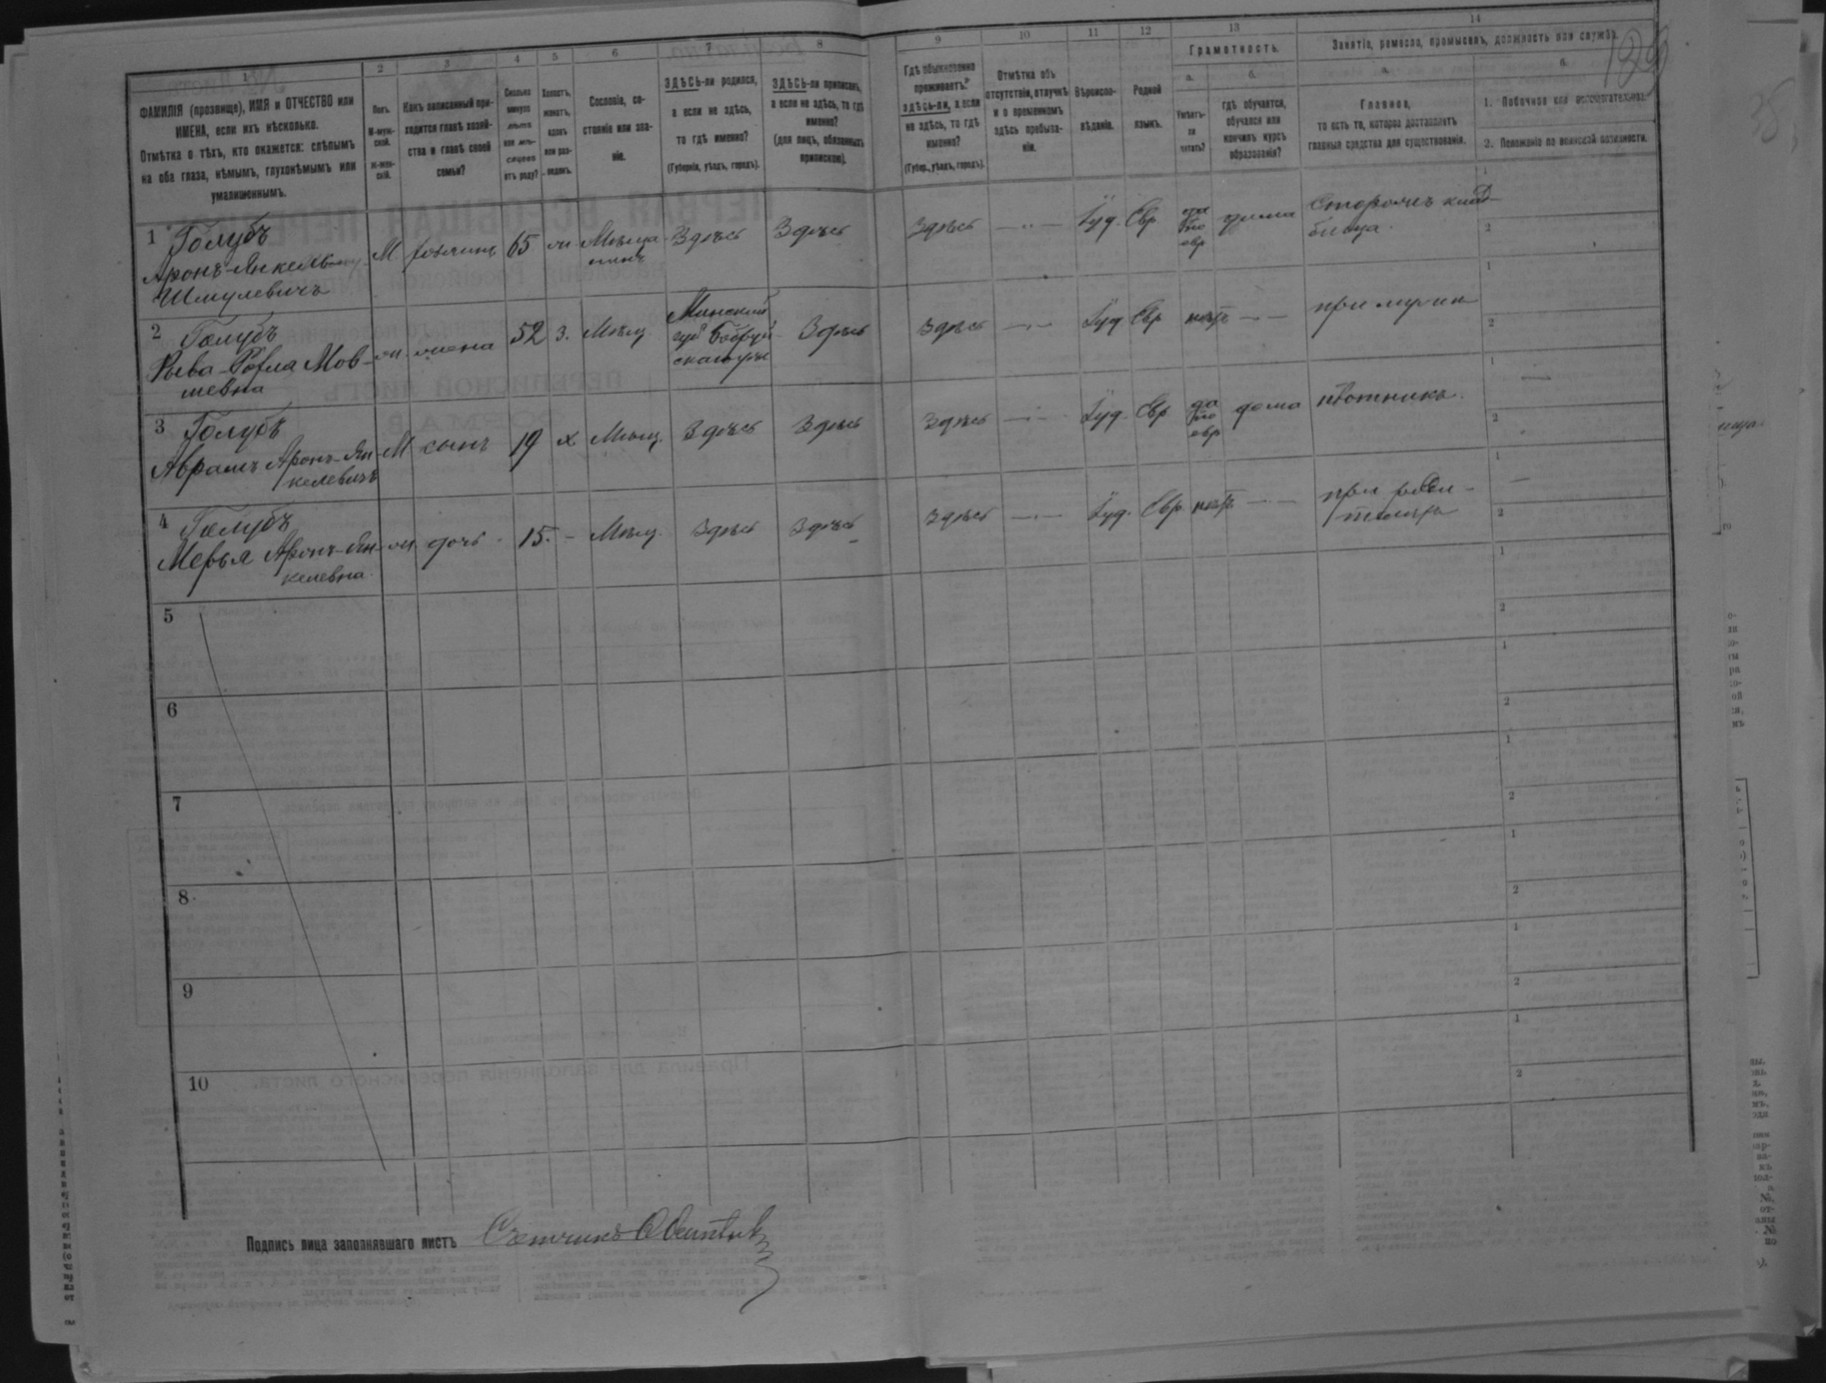 1 2 3 4 5 6 7 8 9 10 11 12 13 14
ФАМИЛІЯ (прозвище), ИМЯ и ОТЧЕСТВО или
ИМЕНА, если ихъ нѣсколько.
Отмѣтка о тѣхъ, кто окажется: слѣпымъ
на оба глаза, нѣмымъ, глухонѣмымъ или
умалишеннымъ.
Полъ.
М-муж-
ской.
Ж-жен-
скій.
Какъ записанный при-
ходится главѣ хозяй-
ства и главѣ своей
семьи?
Сколько
минуло
лѣтъ
или мѣ-
сяцевъ
отъ роду?
Холостъ,
женатъ,
вдовъ
или раз-
веденъ.
Сословіе, со-
стояніе или зва-
ніе.
ЗДѢСЬ-ли родился,
а если не здѣсь,
то гдѣ именно?
(Губернія, уѣздъ, городъ).
ЗДѢСЬ-ли приписанъ,
а если не здѣсь, то гдѣ
именно?
(для лицъ, обязанныхъ
припискою).
Гдѣ обыкновенно
проживаетъ:
здѣсь-ли, а если
не здѣсь, то гдѣ
именно?
(Губер., уѣздъ, городъ).
Отмѣтка объ
отсутствіи, отлучкѣ
и о временномъ
здѣсь пребыва-
ніи.
Вѣроиспо-
вѣданіе.
Родной
языкъ.
Грамотность.
а.
Умѣетъ-
ли
читать?
б.
гдѣ обучается,
обучался или
кончилъ курсъ
образованія?
Занятіе, ремесло, промыселъ, должность или служба.
а.
Главное,
то есть то, которое доставляетъ
главныя средства для существованія.
б.
1. Побочное или вспомогательное.
2. Положеніе по воинской повинности.
1 Голубъ
Аронъ-Янкель
Шмулевичъ
М хозяинъ 65 ж Мѣща
нинъ
Здѣсь Здѣсь Здѣсь Іуд. Евр да
по
евр дома Сторожъ клад-
бища.
2 Голубъ
Рыва-Рохля Мов-
шевна
ж. жена 52 з. Мѣщ
Минской
губ Бобруй-
скаго уѣз
Здѣсь Здѣсь Іуд Евр нѣтъ при мужѣ
3 Голубъ
Абрамъ Аронъ-Ян-
келевичъ
М сынъ 19 х Мѣщ. Здѣсь Здѣсь Здѣсь Іуд. Евр да
по
евр дома плотникъ.
4 Голубъ
Мерья Аронъ-Ян-
келевна
ж дочь 15. Мѣщ. Здѣсь Здѣсь Здѣсь Іуд. Евр. нѣтъ при роди-
теляхъ
5
6
7
8
9
10
Подпись лица заполнявшаго листъ Счетчикъ